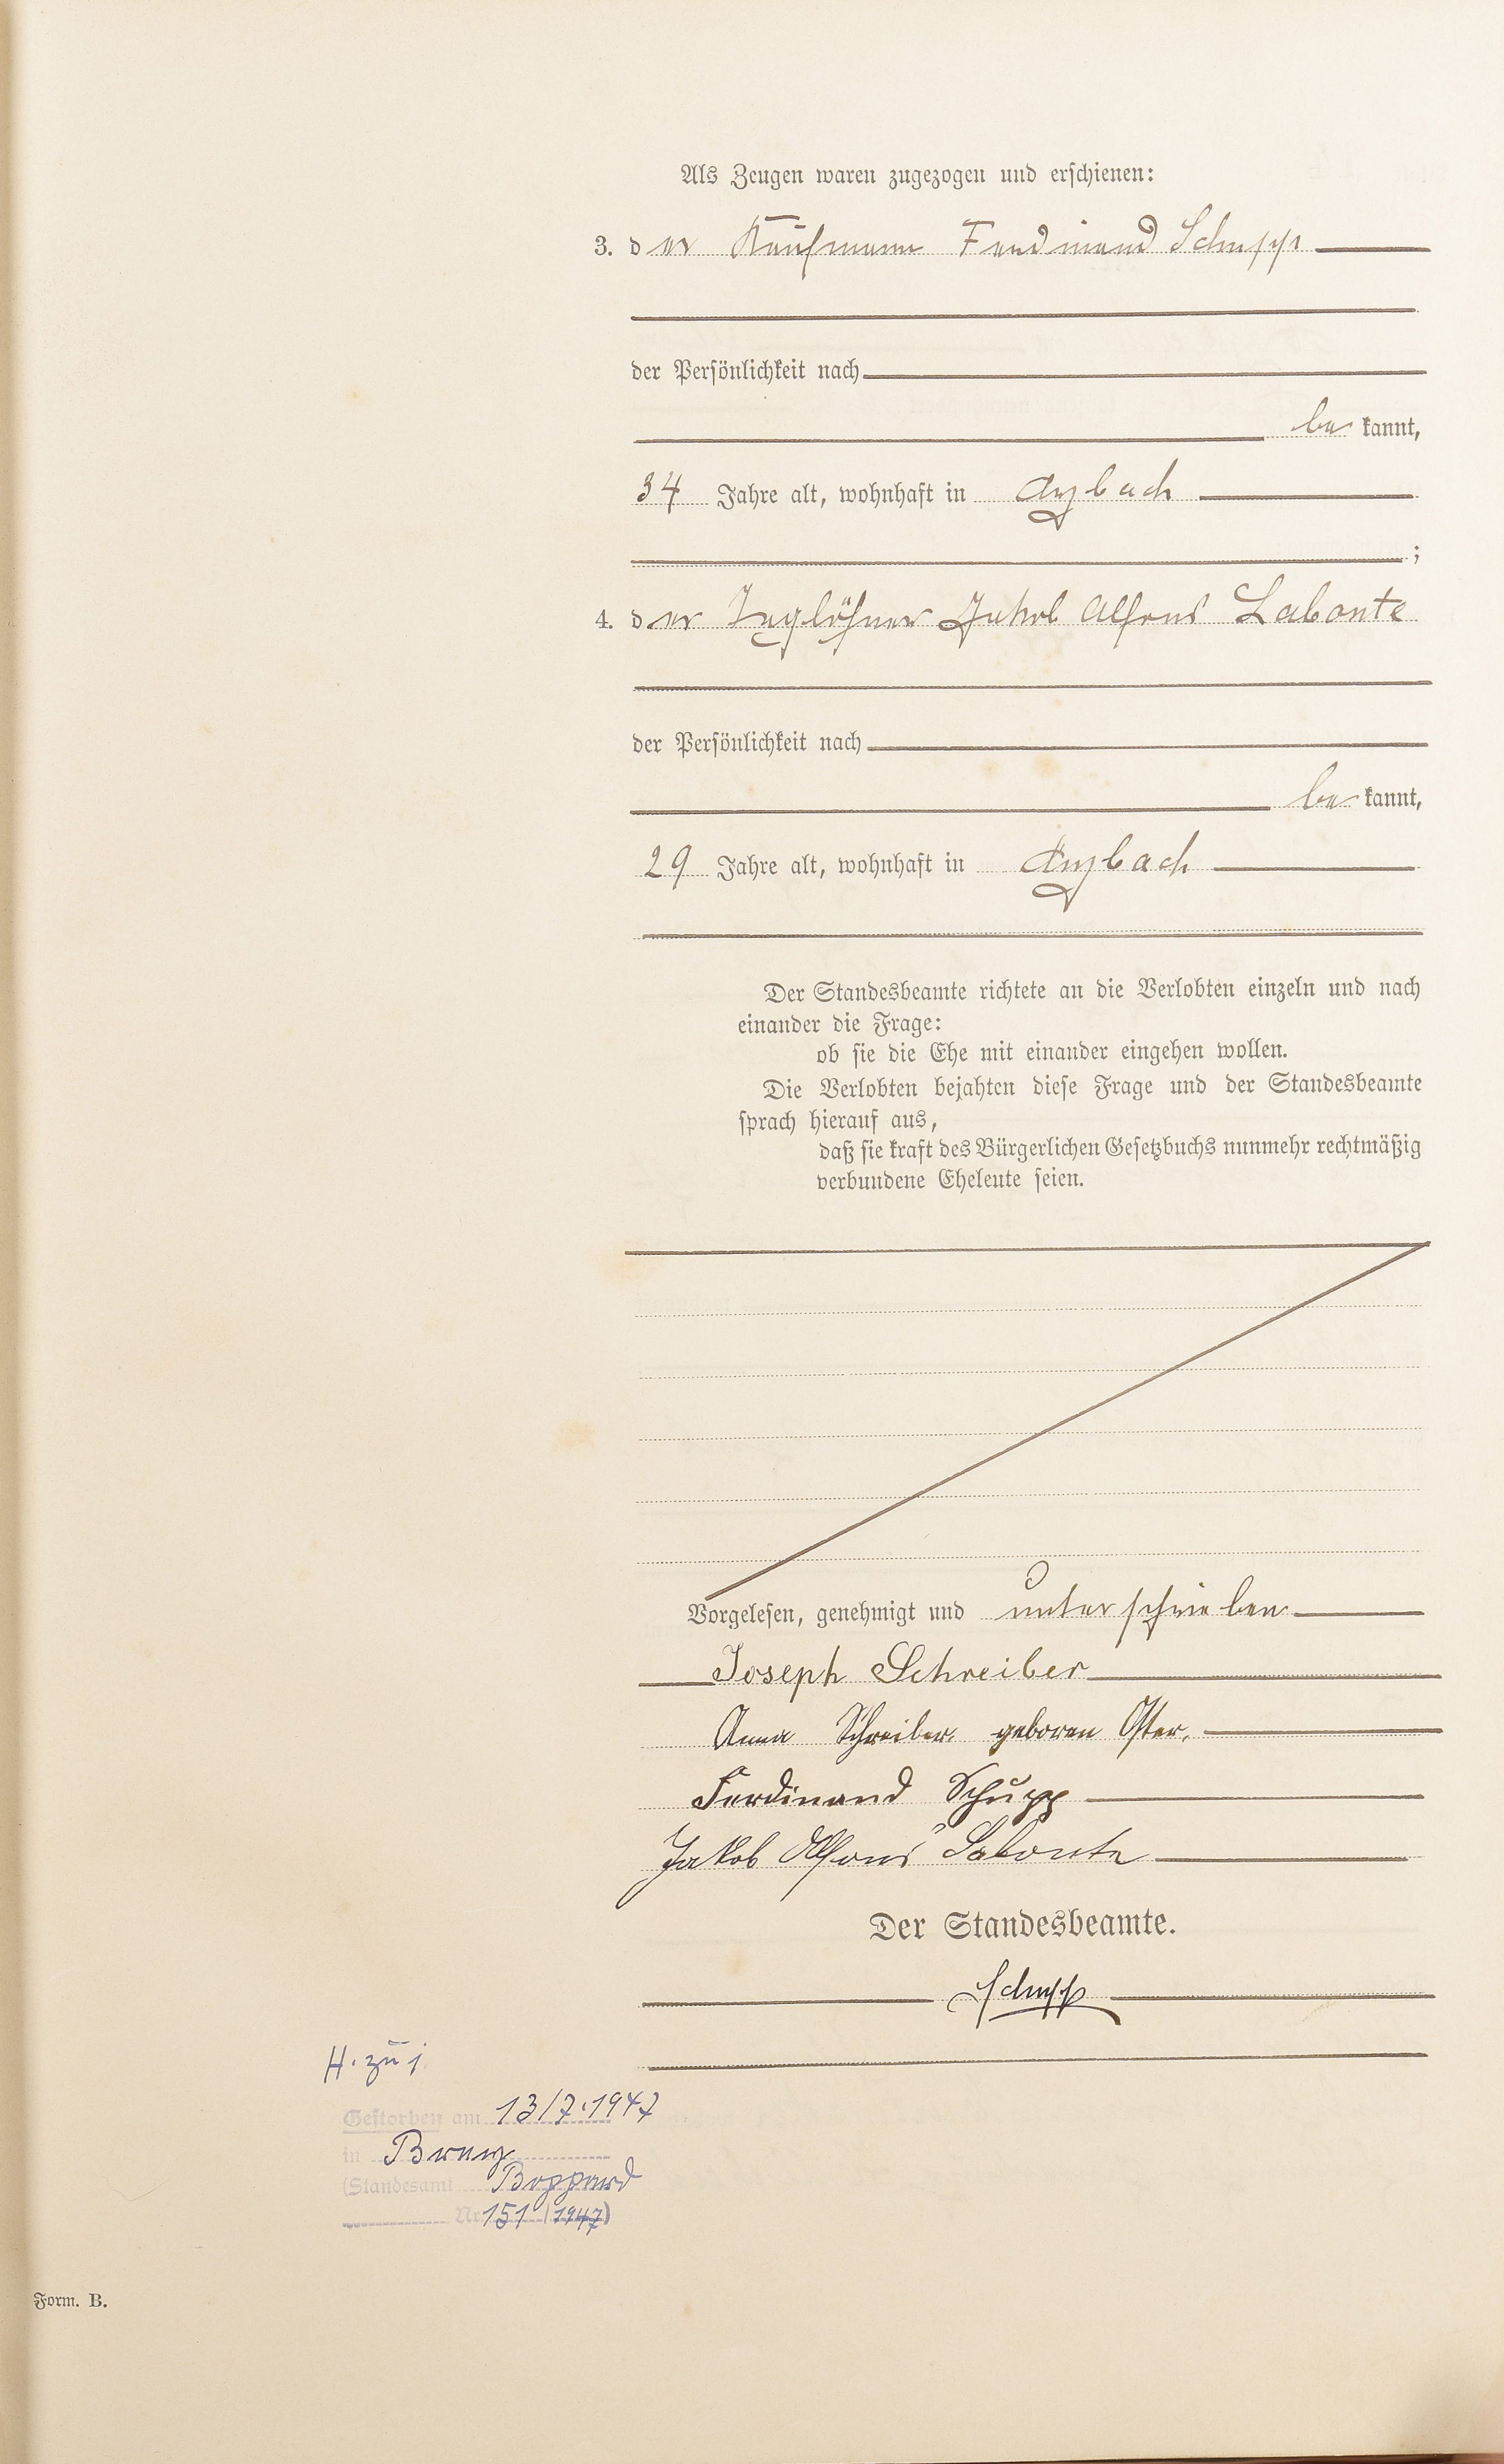 Als Zeugen waren zugezogen und erschienen:
3. der Kaufmann Ferdinand Schupp
der Persönlichkeit nach
be kannt,
34 Jahre alt, wohnhaft in Arzbach
;
4. der Taglöhner Jakob Alfons Labonte
der Persönlichkeit nach
be kannt,
29 Jahre alt, wohnhaft in Arzbach
Der Standesbeamte richtete an die Verlobten einzeln und nach
einander die Frage:
ob sie die Ehe mit einander eingehen wollen.
Die Verlobten bejahten diese Frage und der Standesbeamte
sprach hierauf aus,
daß sie kraft des Bürgerlichen Gesetzbuchs nunmehr rechtmäßig
verbundene Eheleute seien.
Vorgelesen, genehmigt und unterschrieben
Joseph Schreiber
Anna Schreiber geboren Oster.
Ferdinand Schupp
Jakob Alfons Labonte
Der Standesbeamte.
Schupp
H. zu 1.
Gestorben am 13/7.1947
in
(Standesamt Boppard
Nr 151 (1947)
Form. B.